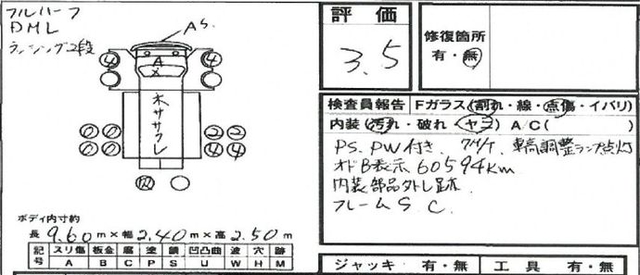 フルハーフ
DML
ラッシング2段
AS
評価
3.5
修復箇所
有・無
4 A 4
X
木ササクレ
0 0 2 2
0 0 4 4
検査員報告 Fガラス(割れ・線・点傷・イバリ)
内装(汚れ・破れ・ヤニ) A/C( )
PS. PW付き. 車高調整ランプ点灯
オドB表示 60594Km
内装部品外し跡
フレームS C.
ボディ内寸約
長9.60m×幅2.40m×高2.50m
記号 スリ傷 板金 腐 塗 錆 凹凸曲 波 穴 跡
A B C P S U W H M
ジャッキ 有・無 工具 有・無